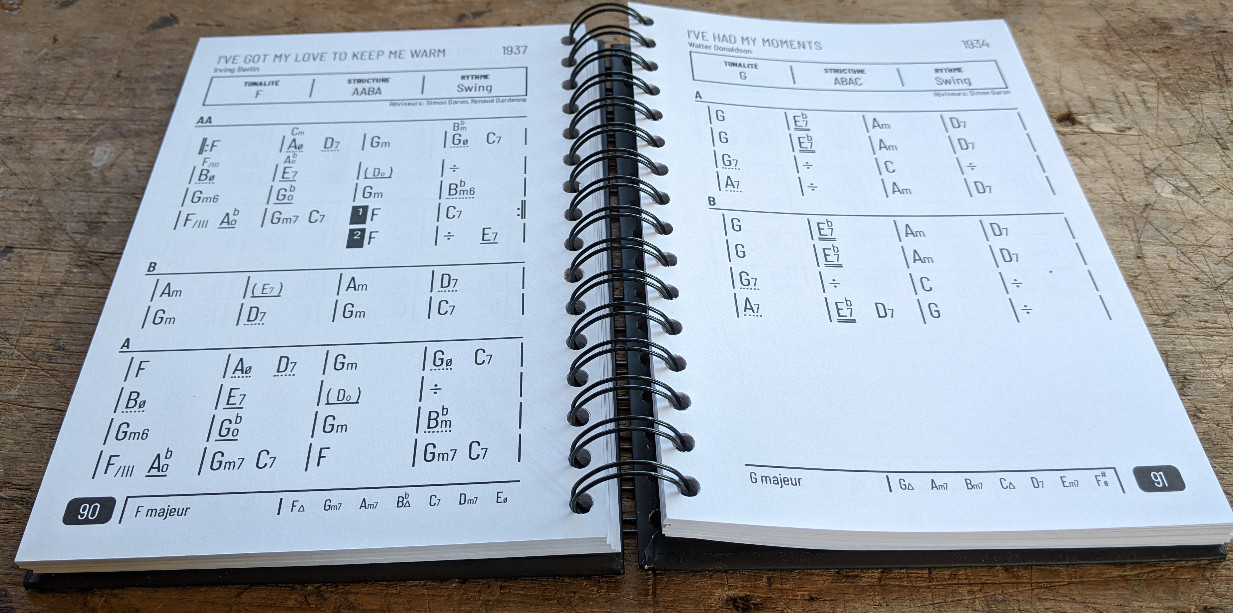 I'VE GOT MY LOVE TO KEEP ME WARM 1937
Irving Berlin
TONALITÉ STRUCTURE RYTHME
F AABA Swing
Réviseurs: Simon Garon, Renaud Dardenne
AA
Cm Bbm
F Aø D7 Gm Gø C7
F/III Ab°
Bø E7 (D°) ÷
Gm6 Gb° Gm Bbm6
F/III Ab° Gm7 C7 1 F C7
2 F ÷ E7
B
Am (E7) Am D7
Gm D7 Gm C7
A
F Aø D7 Gm Gø C7
Bø E7 (D°) ÷
Gm6 Gb° Gm Bbm
F/III Ab° Gm7 C7 F Gm7 C7
90 F majeur F∆ Gm7 Am7 Bb∆ C7 Dm7 Eø
I'VE HAD MY MOMENTS 1934
Walter Donaldson
TONALITÉ STRUCTURE RYTHME
G ABAC Swing
Réviseurs: Simon Garon
A
G Eb7 Am D7
G Eb7 Am D7
G7 ÷ C ÷
A7 ÷ Am D7
B
G Eb7 Am D7
G Eb7 Am D7
G7 ÷ C ÷
A7 Eb7 D7 G ÷
G majeur G∆ Am7 Bm7 C∆ D7 Em7 F#ø 91